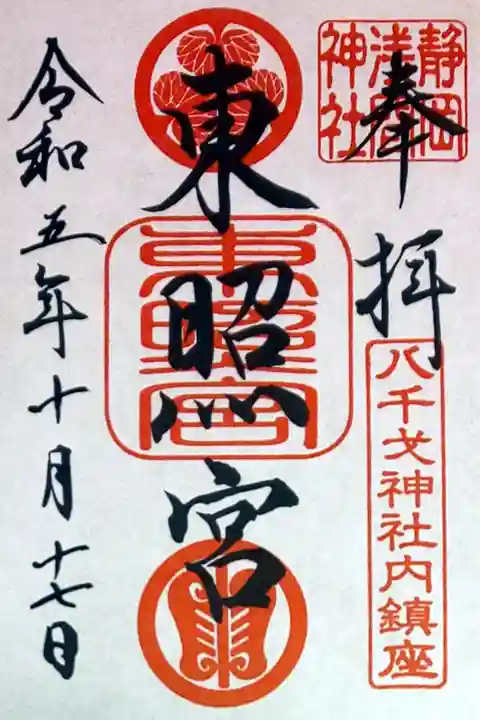 奉拝
静岡浅間神社
八千戈神社内鎮座
東照宮
東照宮
令和五年十月十七日